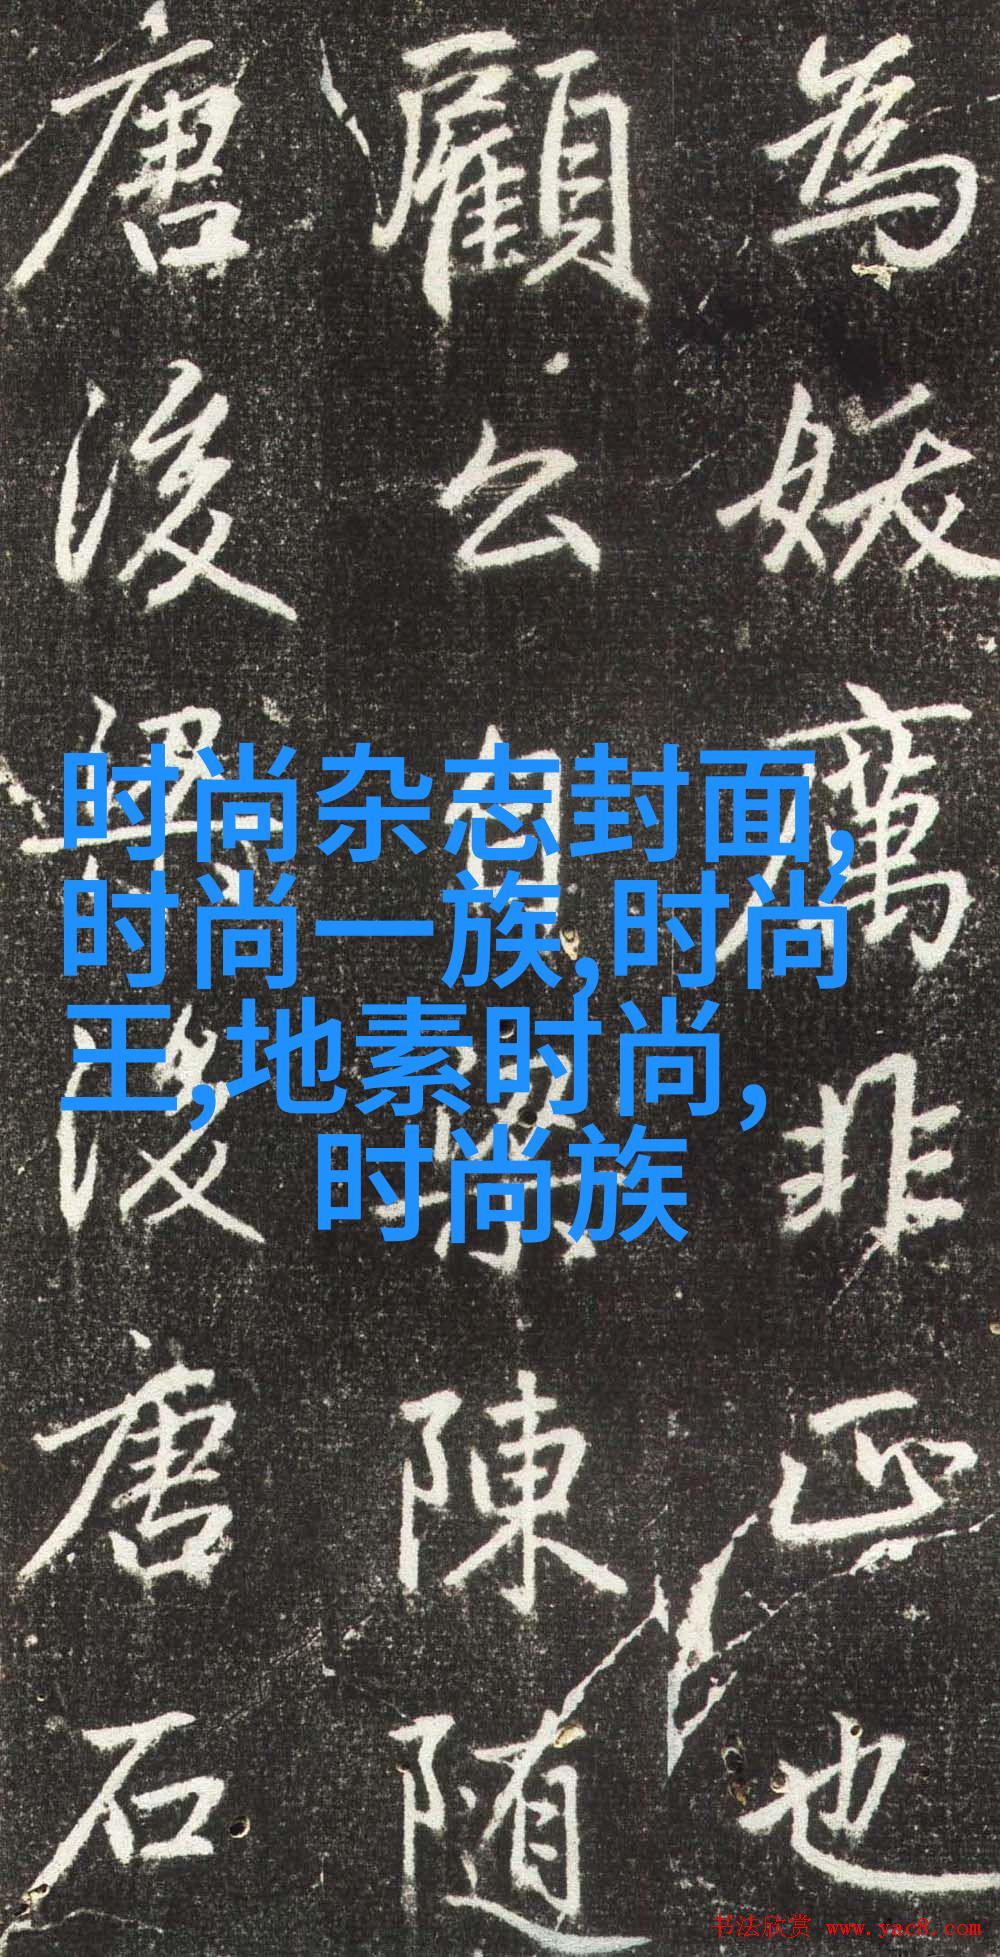 為妖厲非正也
顧公自陳随
唐後後唐石
时尚杂志封面,
时尚一族,时尚
王,地素时尚,
时尚族
书法欣赏 www.yac8.com